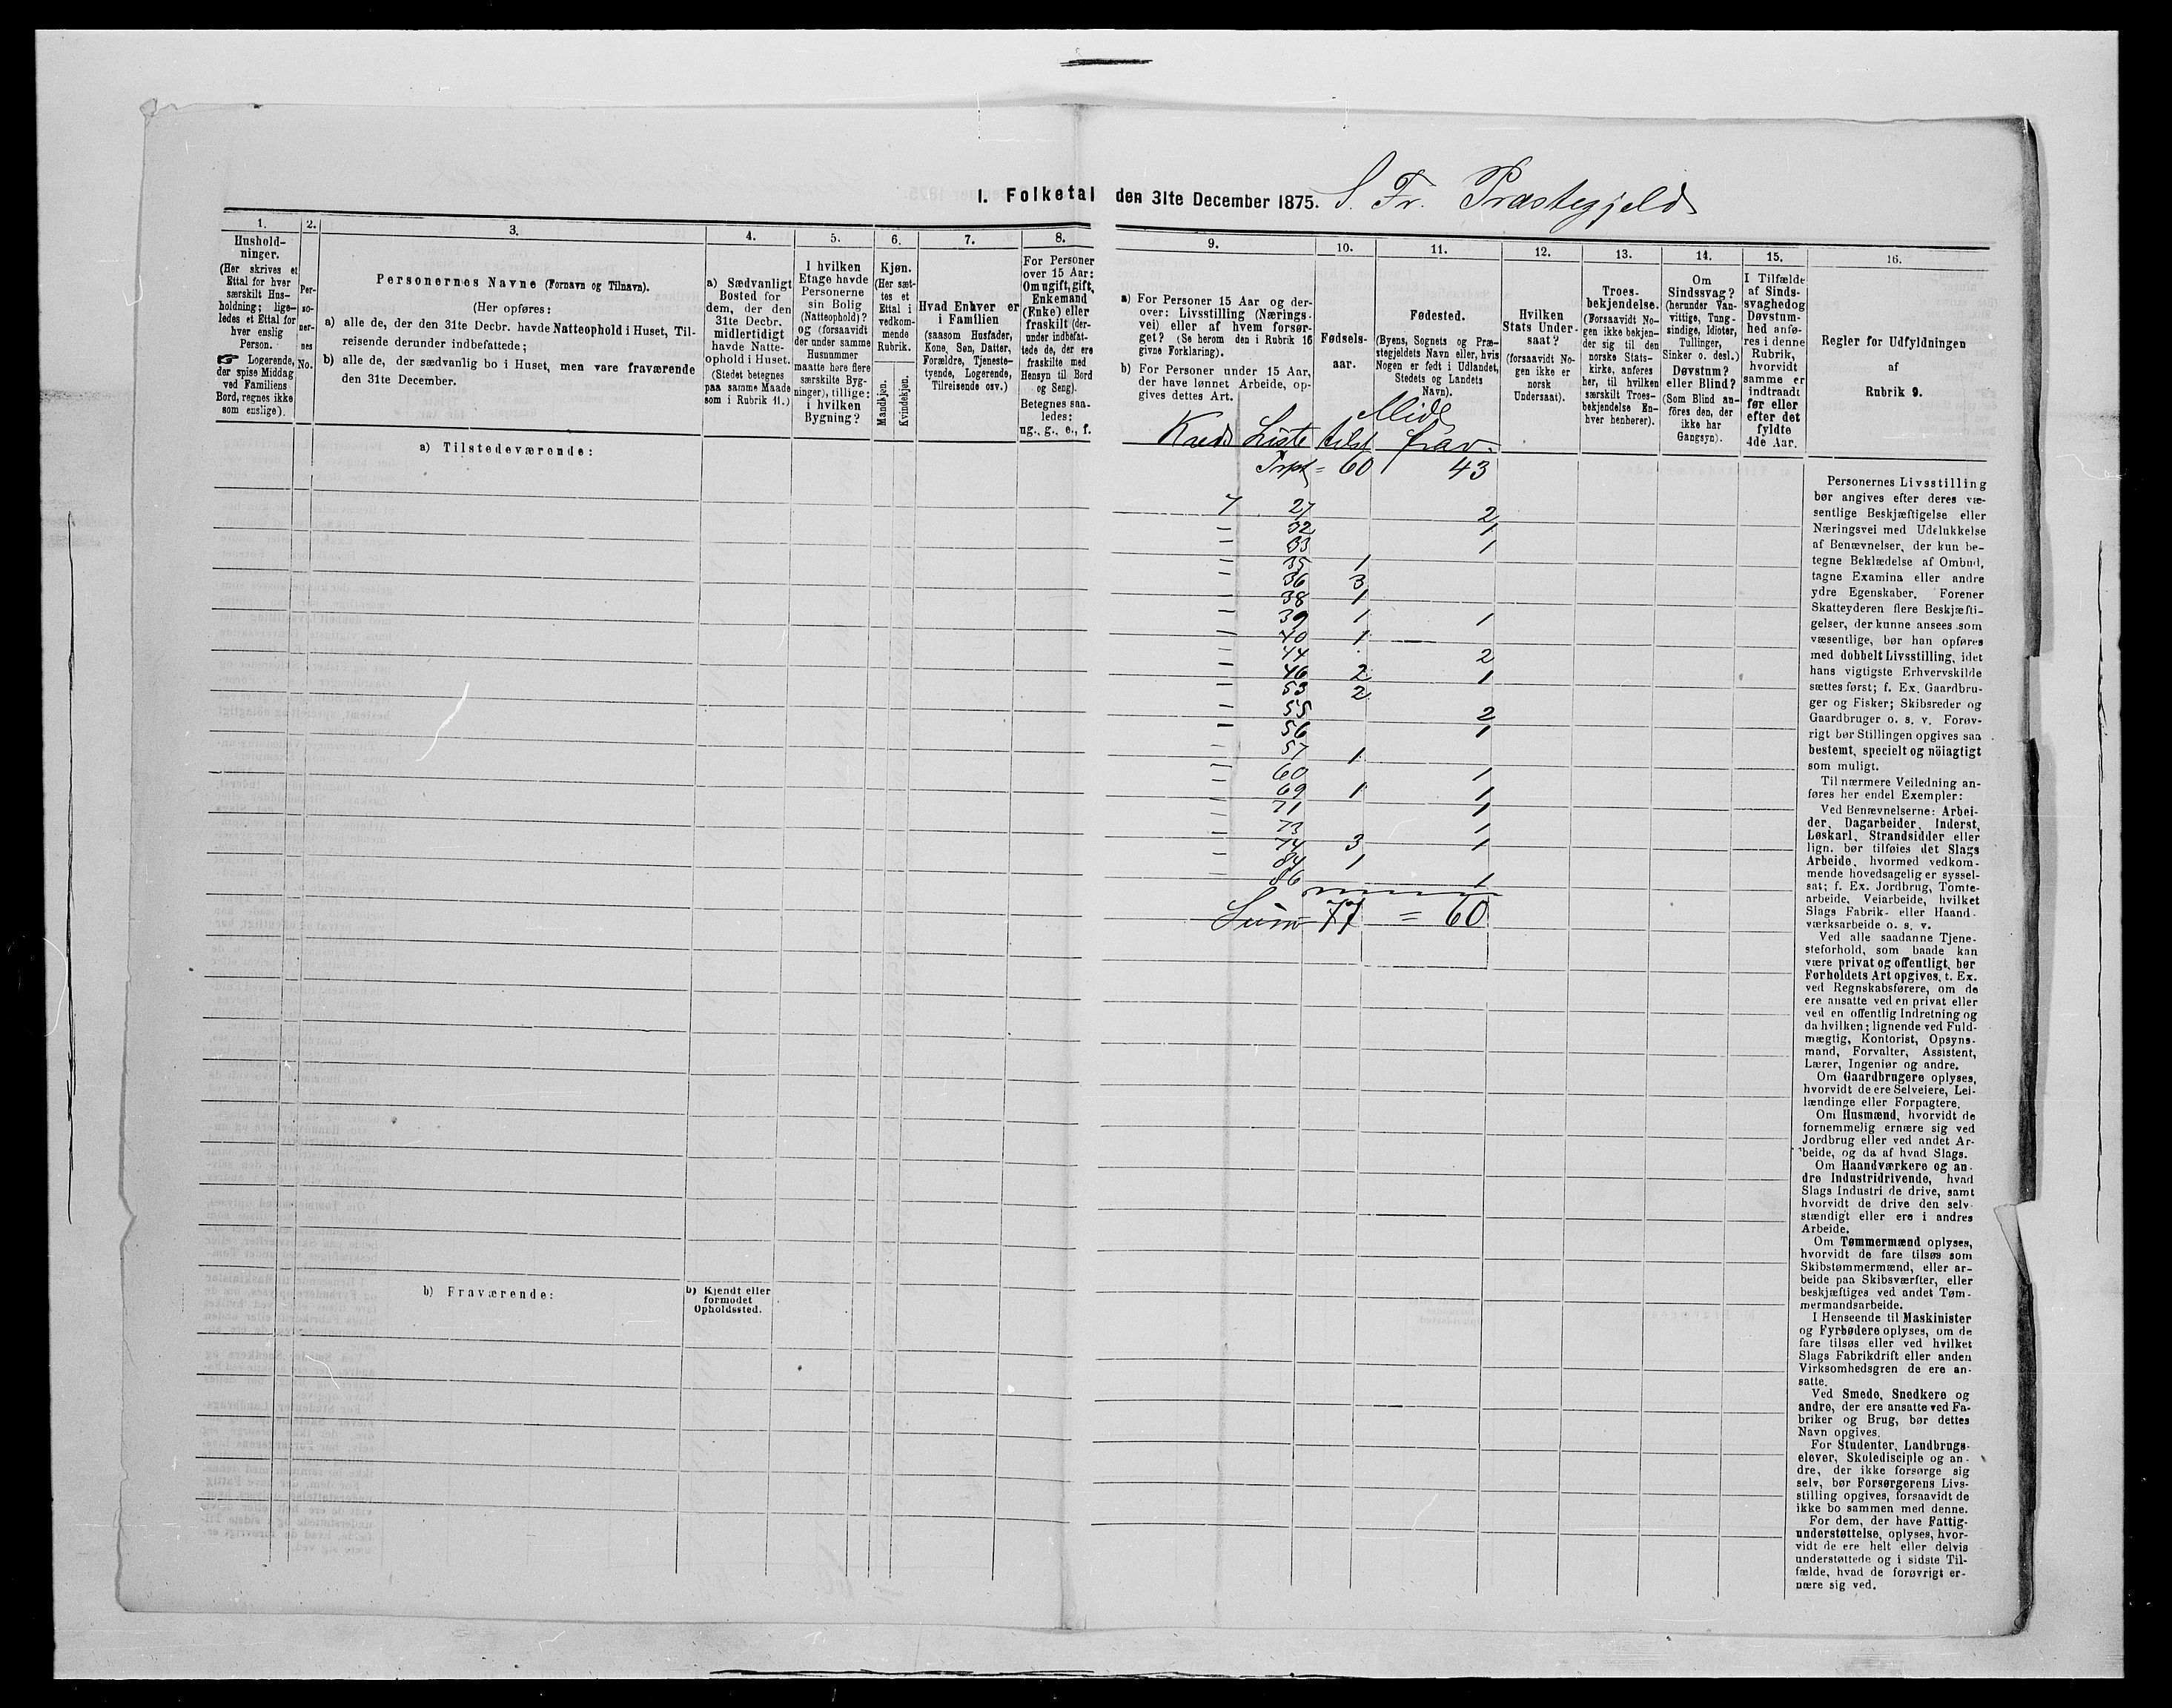 I. Folketal den 31te December 1875. S. Fr. Præstegjeld
1.
Hushold-
ninger.
(Her skrives et
Ettal for hver
særskilt Hus-
holdning; lige-
ledes et Ettal for
hver enslig
Person.
☞ Logerende,
der spise Middag
ved Familiens
Bord, regnes ikke
som enslige).
2.
Per-
so-
ner-
nes
No.
3.
Personernes Navne (Fornavn og Tilnavn).
(Her opføres:
a) alle de, der den 31te Decbr. havde Natteophold i Huset, Til-
reisende derunder indbefattede;
b) alle de, der sædvanlig bo i Huset, men vare fraværende
den 31te December.
4.
a) Sædvanligt
Bosted for
dem, der den
31te Decbr.
midlertidigt
havde Natte-
ophold i Huset.
(Stedet betegnes
paa samme Maade
som i Rubrik 11.)
5.
I hvilken
Etage havde
Personerne
sin Bolig
(Natteophold)?
og (forsaavidt
der under samme
Husnummer
maatte høre flere
særskilte Byg-
ninger), tillige:
i hvilken
Bygning?
6.
Kjøn.
(Her sæt-
tes et
Ettal i
vedkom-
mende
Rubrik.
Mandkjøn.
Kvindekjøn.
7.
Hvad Enhver er
i Familien
(saasom Husfader,
Kone, Søn, Datter,
Forældre, Tjeneste-
tyende, Logerende,
Tilreisende osv.)
8.
For Personer
over 15 Aar:
Om ugift, gift,
Enkemand
(Enke) eller
fraskilt (der-
under indbefat-
tede de, der ere
fraskilte med
Hensyn til Bord
og Seng).
Betegnes saa-
ledes:
ug., g., e., f.
9.
a) For Personer 15 Aar og der-
over: Livsstilling (Nærings-
vei) eller af hvem forsør-
get? (Se herom den i Rubrik 16
givne Forklaring).
b) For Personer under 15 Aar,
der have lønnet Arbeide, op-
gives dettes Art.
10.
Fødsels-
aar.
11.
Fødested.
(Byens, Sognets og Præ-
stegjeldets Navn eller, hvis
Nogen er født i Udlandet,
Stedets og Landets
Navn).
12.
Hvilken
Stats Under-
saat?
(forsaavidt No-
gen ikke er
norsk
Undersaat).
13.
Troes-
bekjendelse.
(Forsaavidt No-
gen ikke bekjen-
der sig til den
norske Stats-
kirke, anføres
her, til hvilken
særskilt Troes-
bekjendelse En-
hver henhører).
14.
Om
Sindssvag?
(herunder Van-
vittige, Tung-
sindige, Idioter,
Tullinger,
Sinker o. desl.)
Døvstum?
eller Blind?
(Som Blind an-
føres den, der
ikke har
Gangsyn).
15.
I Tilfælde
af Sinds-
svaghedog
Døvstum-
hed anfø-
res i denne
Rubrik,
hvorvidt
samme er
indtraadt
før eller
efter det
fyldte
4de Aar.
16.
Regler for Udfyldningen
af
Rubrik 9.
a) Tilstedeværende:
Mide
Kreds Liste tilst frav.
Trpt = 60 43
7 27 2
" 32 1
" 33 1
" 35 1
" 36 3
" 38 1
" 39 1 1
" 40 1
" 44 2
" 46 2 1
" 53 2
" 55 2
" 56 1
" 57 1
" 60 1
" 69 1 1
" 71 1
" 73 1
" 74 3 1
" 84 1
" 86 1
Sum = 77 = 60
b) Fraværende:
b) Kjendt eller
formodet
Opholdssted.
Personernes Livsstilling
bør angives efter deres væ-
sentlige Beskjæftigelse eller
Næringsvei med Udelukkelse
af Benævnelser, der kun be-
tegne Beklædelse af Ombud,
tagne Examina eller andre
ydre Egenskaber. Forener
Skatteyderen flere Beskjæfti-
gelser, der kunne ansees som
væsentlige, bør han opføres
med dobbelt Livsstilling, idet
hans vigtigste Erhvervskilde
sættes først; f. Ex. Gaardbru-
ger og Fisker; Skibsreder og
Gaardbruger o. s. v. Forøv-
rigt bør Stillingen opgives saa
bestemt, specielt og nöiagtigt
som muligt.
Til nærmere Veiledning an-
føres her endel Exempler:
Ved Benævnelserne: Arbei-
der, Dagarbeider, Inderst,
Løskarl, Strandsidder eller
lign. bør tilføies det Slags
Arbeide, hvormed vedkom-
mende hovedsagelig er syssel-
sat; f. Ex. Jordbrug, Tomte-
arbeide, Veiarbeide, hvilket
Slags Fabrik- eller Haand-
værksarbeide o. s. v.
Ved alle saadanne Tjene-
steforhold, som baade kan
være privat og offentligt, bør
Forholdets Art opgives, t. Ex.
ved Regnskabsførere, om de
ere ansatte ved en privat eller
ved en offentlig Indretning og
da hvilken; lignende ved Fuld-
mægtig, Kontorist, Opsyns-
mand, Forvalter, Assistent,
Lærer, Ingeniør og andre.
Om Gaardbrugere oplyses,
hvorvidt de ere Selveiere, Lei-
lændinge eller Forpagtere.
Om Husmænd, hvorvidt de
fornemmelig ernære sig ved
Jordbrug eller ved andet Ar-
beide, og da af hvad Slags.
Om Haandværkere og an-
dre Industridrivende, hvad
Slags Industri de drive, samt
hvorvidt de drive den selv-
stændigt eller ere i andres
Arbeide.
Om Tømmermænd oplyses,
hvorvidt de fare tilsøs som
Skibstømmermænd, eller ar-
beide paa Skibsværfter, eller
beskjæftiges ved andet Tøm-
mermandsarbeide.
I Henseende til Maskinister
og Fyrbødere oplyses, om de
fare tilsøs eller ved hvilket
Slags Fabrikdrift eller anden
Virksomhedsgren de ere an-
satte.
Ved Smede, Snedkere og
andre, der ere ansatte ved Fa-
briker og Brug, bør dettes
Navn opgives.
For Studenter, Landbrugs-
elever, Skoledisciple og an-
dre, der ikke forsørge sig
selv, bør Forsørgerens Livs-
stilling opgives, forsaavidt de
ikke bo sammen med denne.
For dem, der have Fattig-
understøttelse, oplyses, hvor-
vidt de ere helt eller delvis
understøttede og i sidste Til-
fælde, hvad de forøvrigt er-
nære sig ved.